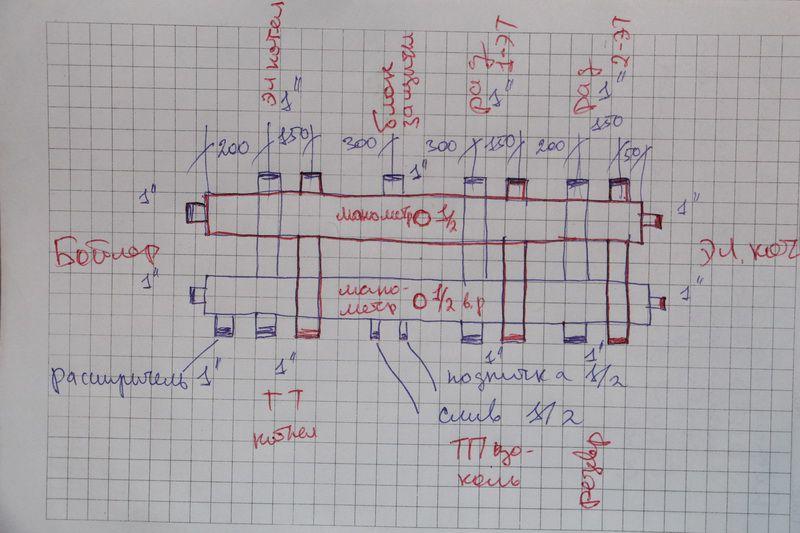 эл котел
1"
блок
защиты
рад
1-ЭТ
1"
рад
2-ЭТ
1"
200
150
300
300
150
200
150
50
1"
1"
манометр 1/2
1"
Бойлер
эл. кот
1"
мано-
метр 1/2 в.р
1"
расширитель 1"
1"
1"
1"
подпитка 1/2
слив 1/2
ТТ
котел
ТП цо-
коль
резерв